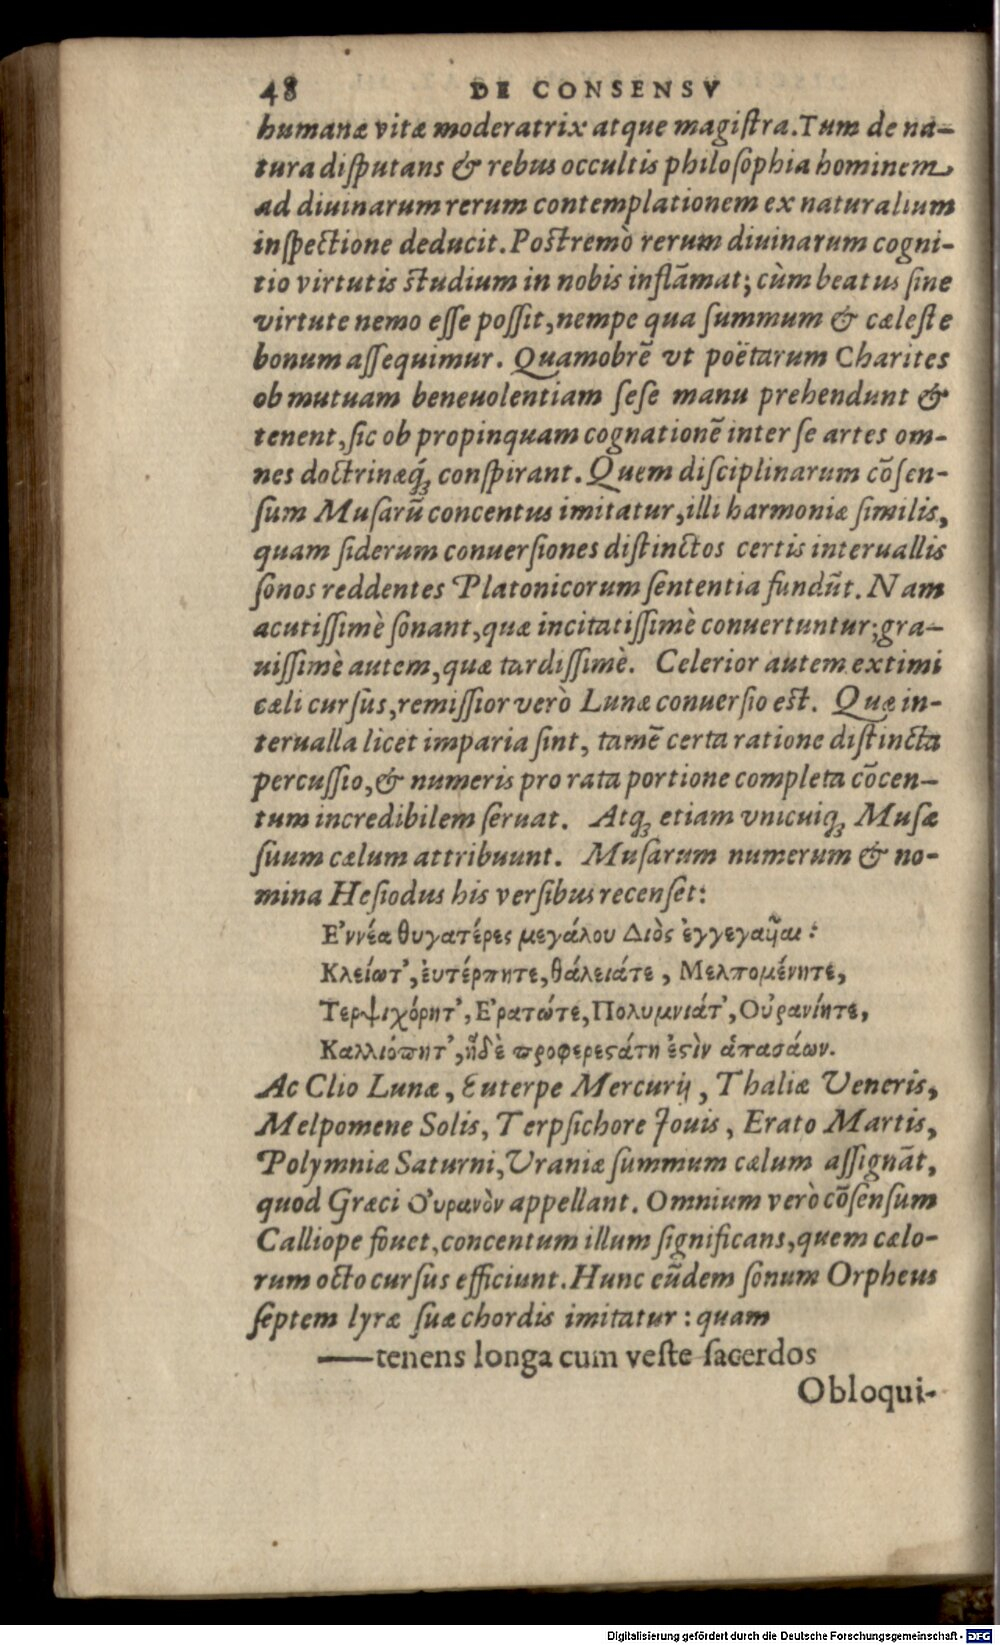 48 DE CONSENSV
humanæ vitæ moderatrix atque magiſtra. Tum de na-
tura diſputans & rebus occultis philoſophia hominem
ad diuinarum rerum contemplationem ex naturalium
inſpectione deducit. Poſtremò rerum diuinarum cogni-
tio virtutis ſtudium in nobis inflāmat; cùm beatus ſine
virtute nemo eſſe poſſit, nempe qua ſummum & cæleſte
bonum aſſequimur. Quamobrē vt poëtarum Charites
ob mutuam beneuolentiam ſeſe manu prehendunt &
tenent, ſic ob propinquam cognationē inter ſe artes om-
nes doctrinæq́ꝫ conſpirant. Quem diſciplinarum cōſen-
ſum Muſarū concentus imitatur, illi harmoniæ ſimilis,
quam ſiderum conuerſiones diſtinctos certis interuallis
ſonos reddentes Platonicorum ſententia fundūt. Nam
acutiſſimè ſonant, quæ incitatiſſimè conuertuntur; gra-
uiſſimè autem, quæ tardiſſimè. Celerior autem extimi
cæli curſus, remiſſior verò Lunæ conuerſio eſt. Quæ in-
terualla licet imparia ſint, tamē certa ratione diſtincta
percuſſio, & numeris pro rata portione completa cōcen-
tum incredibilem ſeruat. Atqꝫ etiam vnicuiqꝫ Muſæ
ſuum cælum attribuunt. Muſarum numerum & no-
mina Heſiodus his verſibus recenſet:
Ἐννέα θυγατέρες μεγάλου Διὸς ἐγγεγαῦαι :
Κλείωτ’, ἐυτέρπητε, θάλειάτε, Μελπομένητε,
Τερψιχόρητ’, Ἐρατώτε, Πολυμνιάτ’, Οὐρανίητε,
Καλλιόπητ’, ἥδὲ προφερεϛάτη ἐϛὶν ἁπασάων.
Ac Clio Lunæ, Euterpe Mercurij, Thaliæ Veneris,
Melpomene Solis, Terpſichore Jouis, Erato Martis,
Polymniæ Saturni, Vraniæ ſummum cælum aſſignāt,
quod Græci Οὐρανὸν appellant. Omnium verò cōſenſum
Calliope fouet, concentum illum ſignificans, quem cælo-
rum octo curſus efficiunt. Hunc eūdem ſonum Orpheus
ſeptem lyræ ſuæ chordis imitatur : quam
—tenens longa cum veſte ſacerdos
Obloqui-
Digitalisierung gefördert durch die Deutsche Forschungsgemeinschaft - DFG